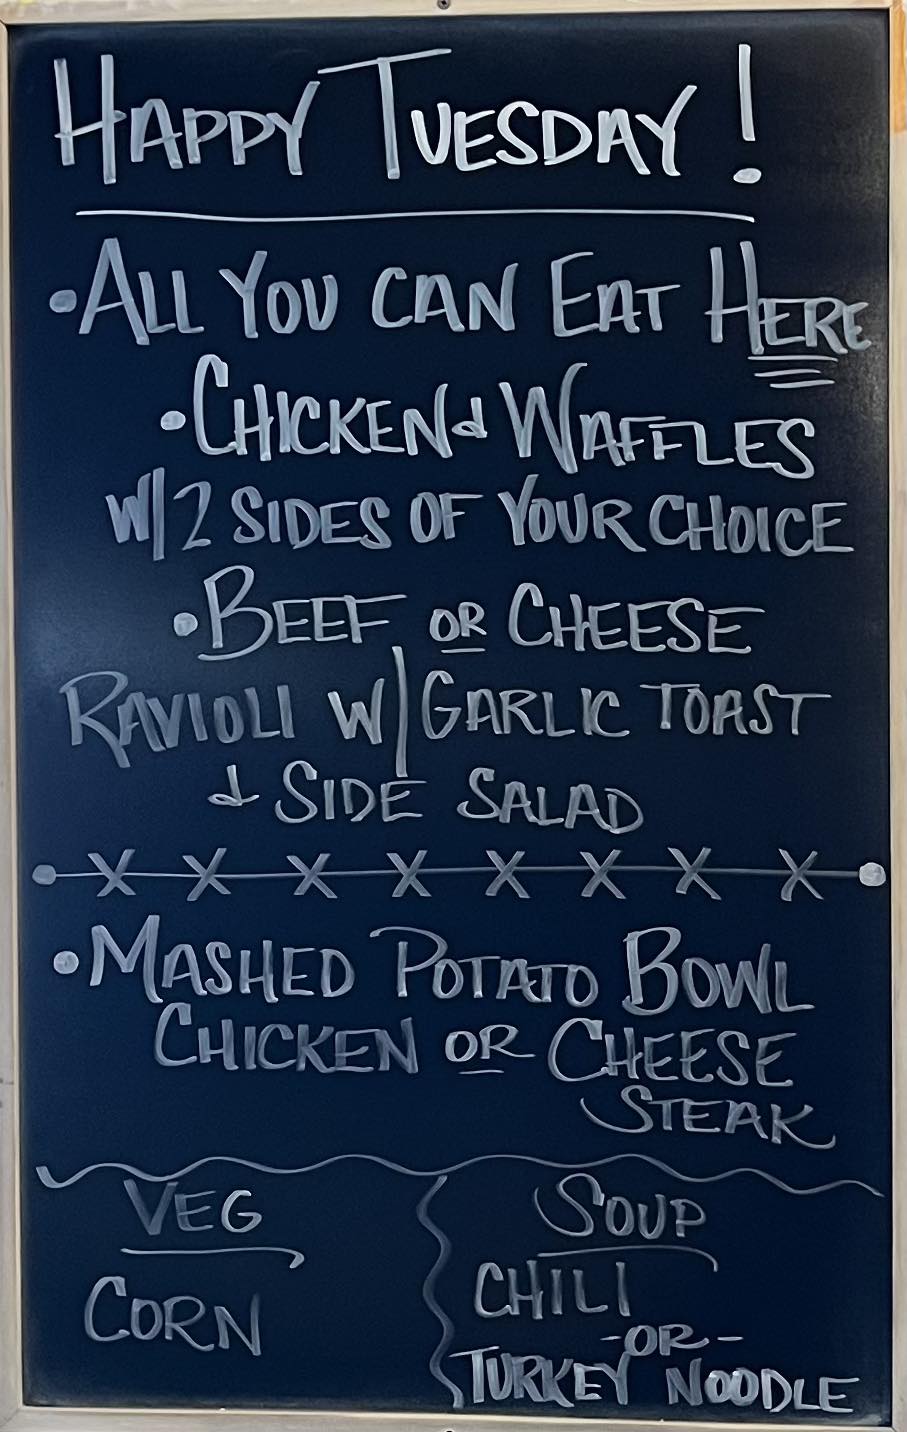 HAPPY TUESDAY!
• ALL YOU CAN EAT HERE
• CHICKEN & WAFFLES
W/ 2 SIDES OF YOUR CHOICE
• BEEF OR CHEESE
RAVIOLI W/ GARLIC TOAST
& SIDE SALAD
X X X X X X X X
• MASHED POTATO BOWL
CHICKEN OR CHEESE
STEAK
VEG
CORN
SOUP
CHILI
-OR-
TURKEY NOODLE